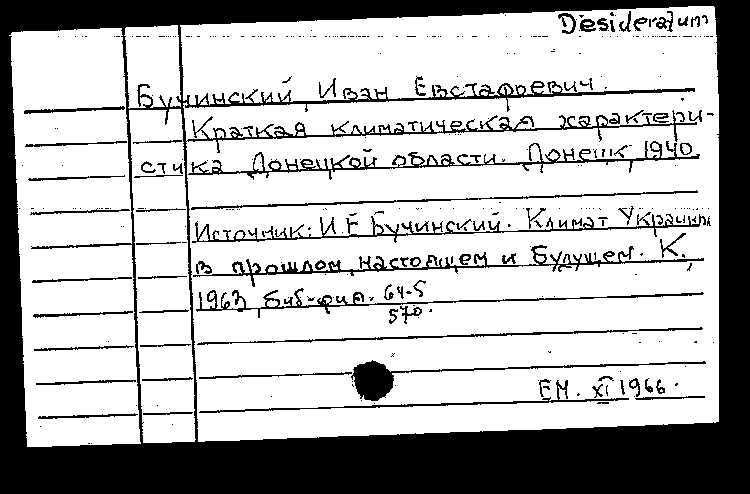 Desideratum
Бучинский, Иван Евстафьевич.
Краткая климатическая характери-
стика Донецкой области. Донецк, 1940.
Источник: И.Е Бучинский. Климат Украины
в прошлом, настоящем и будущем. К.,
1963, 64-5
570.
ЕМ. XI 1966.